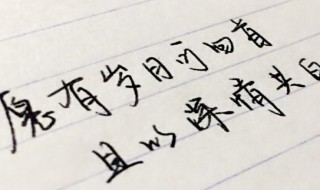 愿有岁月可回首
且以深情共白